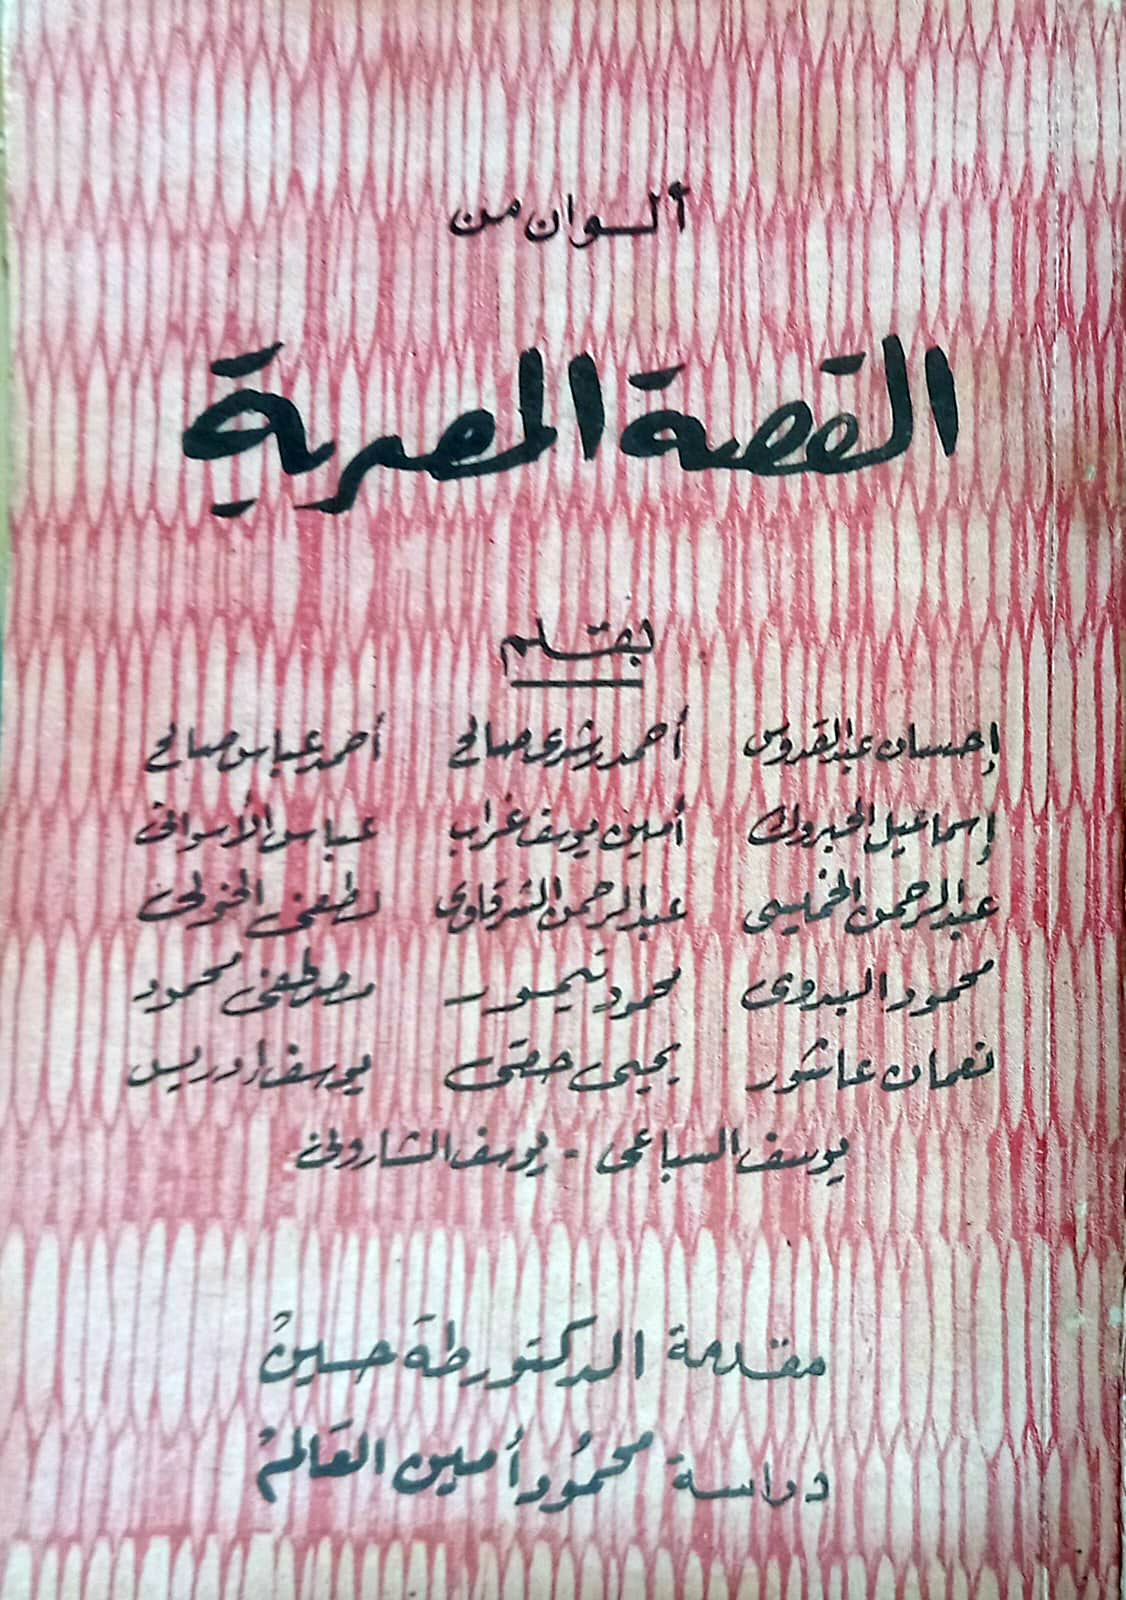 ألوان من
القصة المصرية
بقلم
إحسان عبد القدوس أحمد رشدى صالح أحمد عباس صالح
إسماعيل الحبروك أمين يوسف غراب عباس الأسوانى
عبد الرحمن الخميسى عبد الرحمن الشرقاوى لطفى الخولى
محمود البدوى محمود تيمور مصطفى محمود
نعمان عاشور يحيى حقى يوسف إدريس
يوسف السباعى - يوسف الشارونى
مقدمة الدكتور طه حسين
دراسة محمود أمين العالم